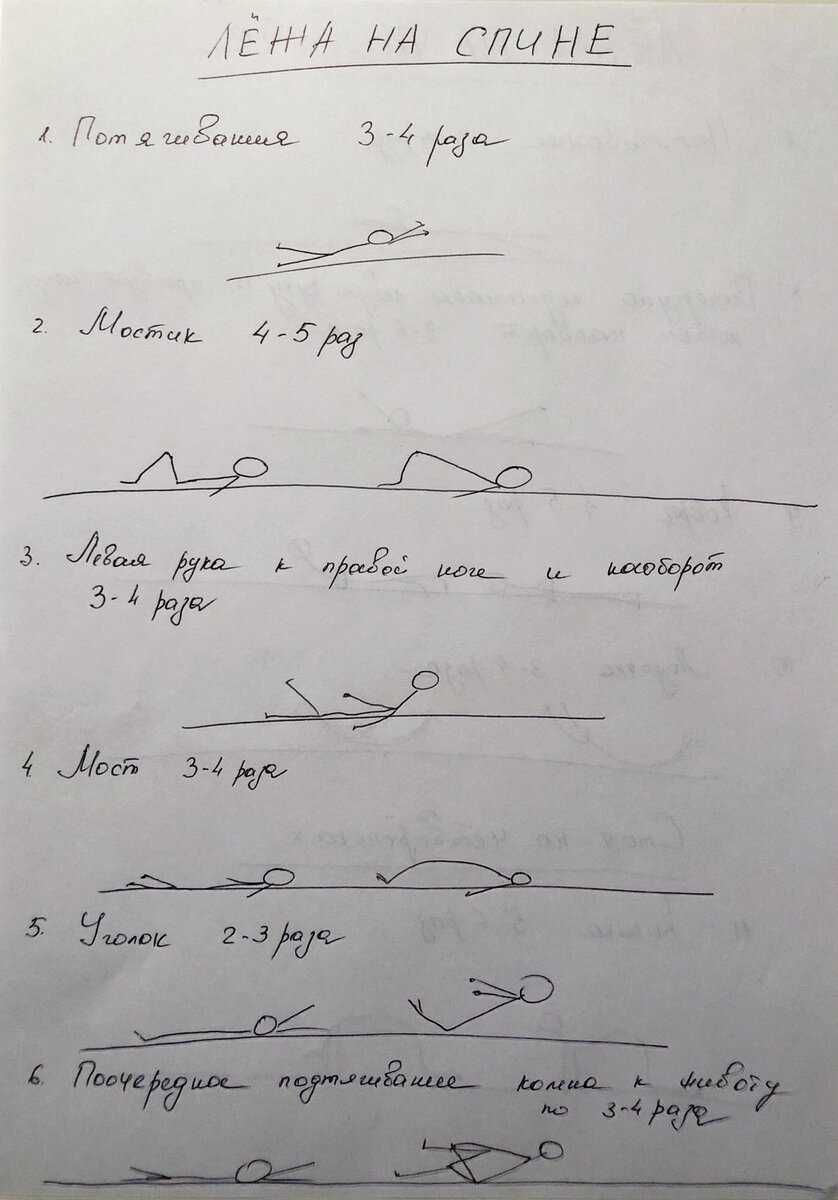 ЛЁЖА НА СПИНЕ
1. Потягивания 3-4 раза
2. Мостик 4-5 раз
3. Левая рука к правой ноге и наоборот
3-4 раза
4. Мост 3-4 раза
5. Уголок 2-3 раза
6. Поочередное подтягивание колена к животу
по 3-4 раза